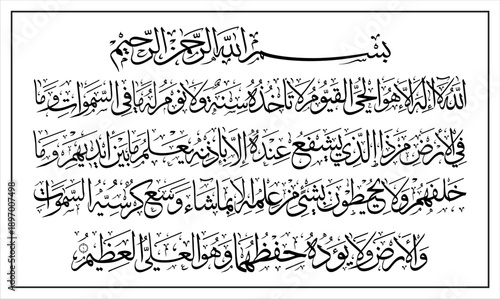 بسم الله الرحمن الرحيم
الله لا إله إلا هو الحي القيوم لا تأخذه سنة ولا نوم له ما في السموات وما
في الارض من ذا الذي يشفع عنده إلا بإذنه يعلم ما بين ايديهم وما
خلفهم ولا يحيطون بشيئ من علمه إلا بما شاء وسع كرسيه السموات
والارض ولا يؤده حفظهما وهو العلي العظيم
Adobe Stock | #1897007498